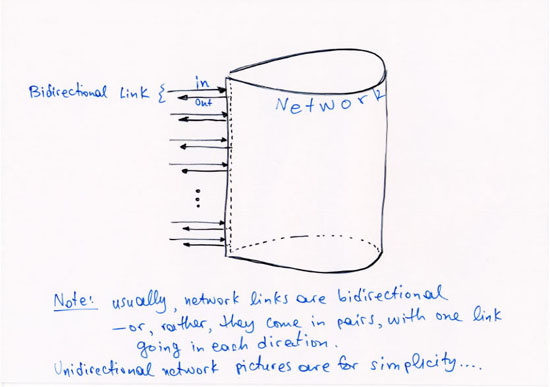 Bidirectional Link {
in
out
Network
Note: usually, network links are bidirectional
—or, rather, they come in pairs, with one link
going in each direction.
Unidirectional network pictures are for simplicity....